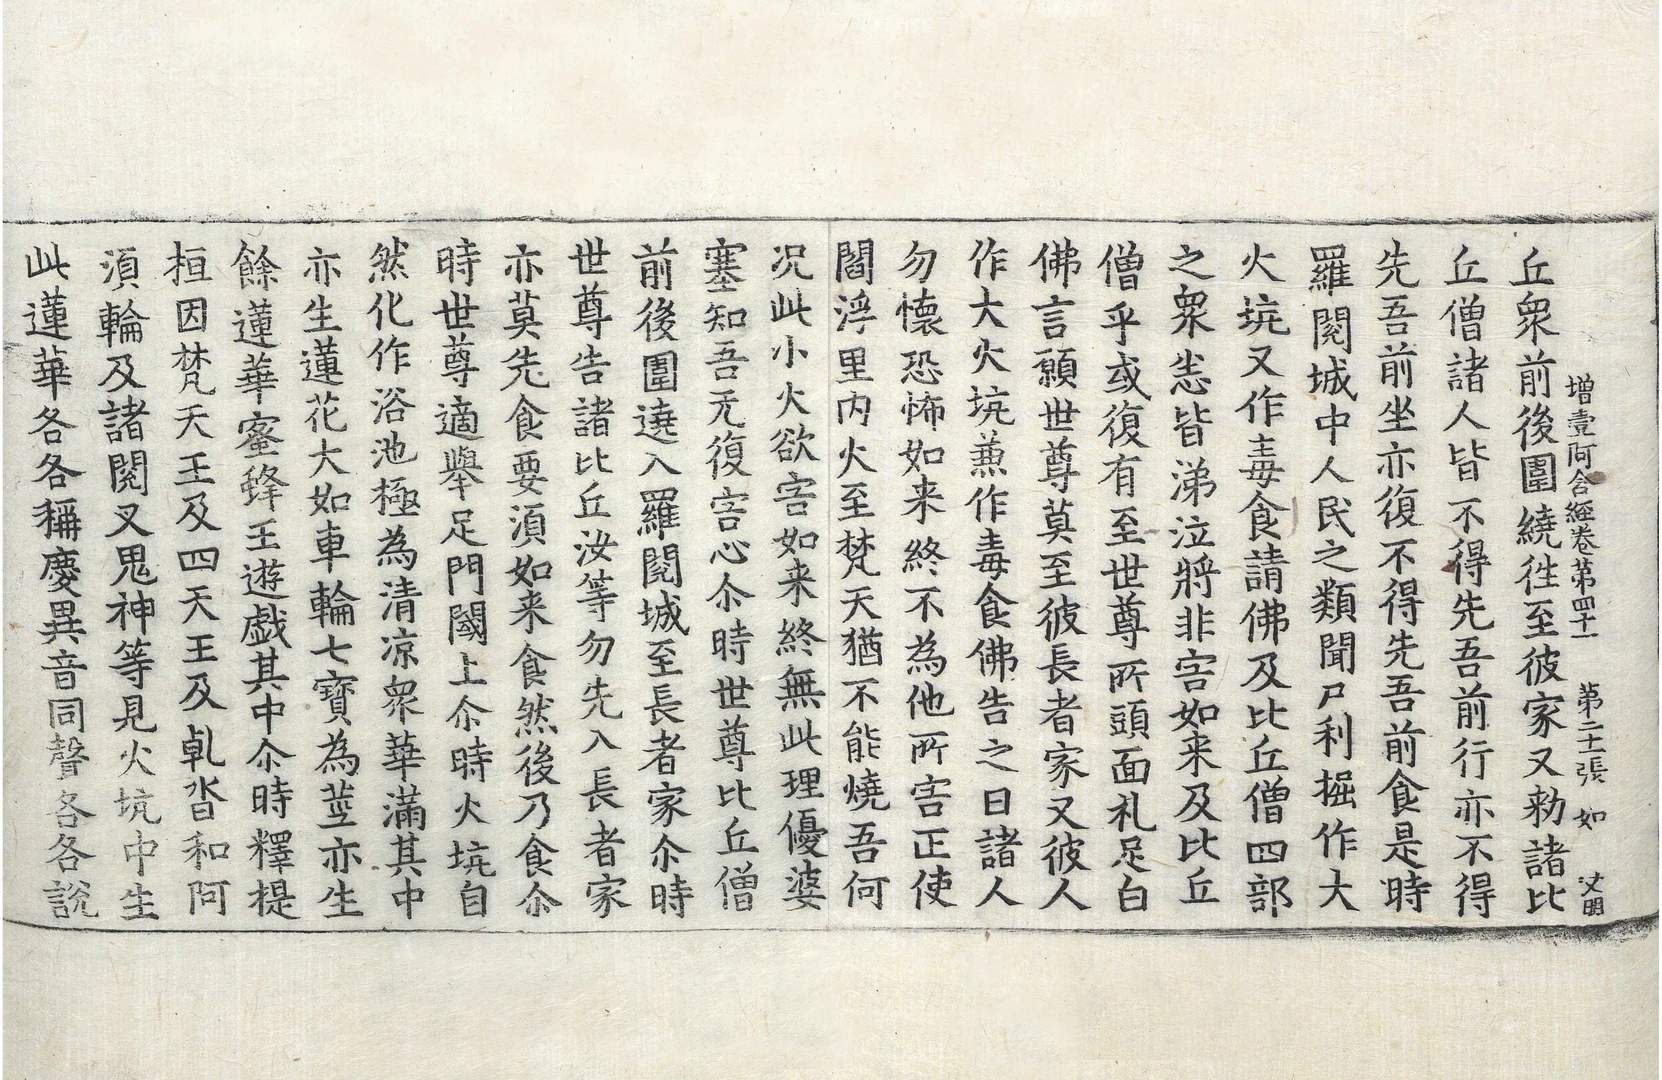 增壹阿含經卷第四十一 第二十張 如 文明
丘衆前後圍繞徃至彼家又勑諸比
丘僧諸人皆不得先吾前行亦不得
先吾前坐亦復不得先吾前食是時
羅閱城中人民之類聞尸利掘作大
火坑又作毒食請佛及比丘僧四部
之衆恙皆涕泣將非害如来及比丘
僧乎或復有至世尊所頭面礼足白
佛言願世尊莫至彼長者家又彼人
作大火坑兼作毒食佛告之曰諸人
勿懷恐怖如来終不為他所害正使
閻浮里內火至梵天猶不能燒吾何
况此小火欲害如来終無此理優婆
塞知吾无復害心尒時世尊比丘僧
前後圍遶入羅閱城至長者家尒時
世尊告諸比丘汝等勿先入長者家
亦莫先食要湏如来食然後乃食尒
時世尊適舉足門閫上尒時火坑自
然化作浴池極為清凉衆華滿其中
亦生蓮花大如車輪七寶為莖亦生
餘蓮華蜜蜂王遊戲其中尒時釋提
桓因梵天王及四天王及乹沓和阿
湏輪及諸閱叉鬼神等見火坑中生
此蓮華各各稱慶異音同聲各各說